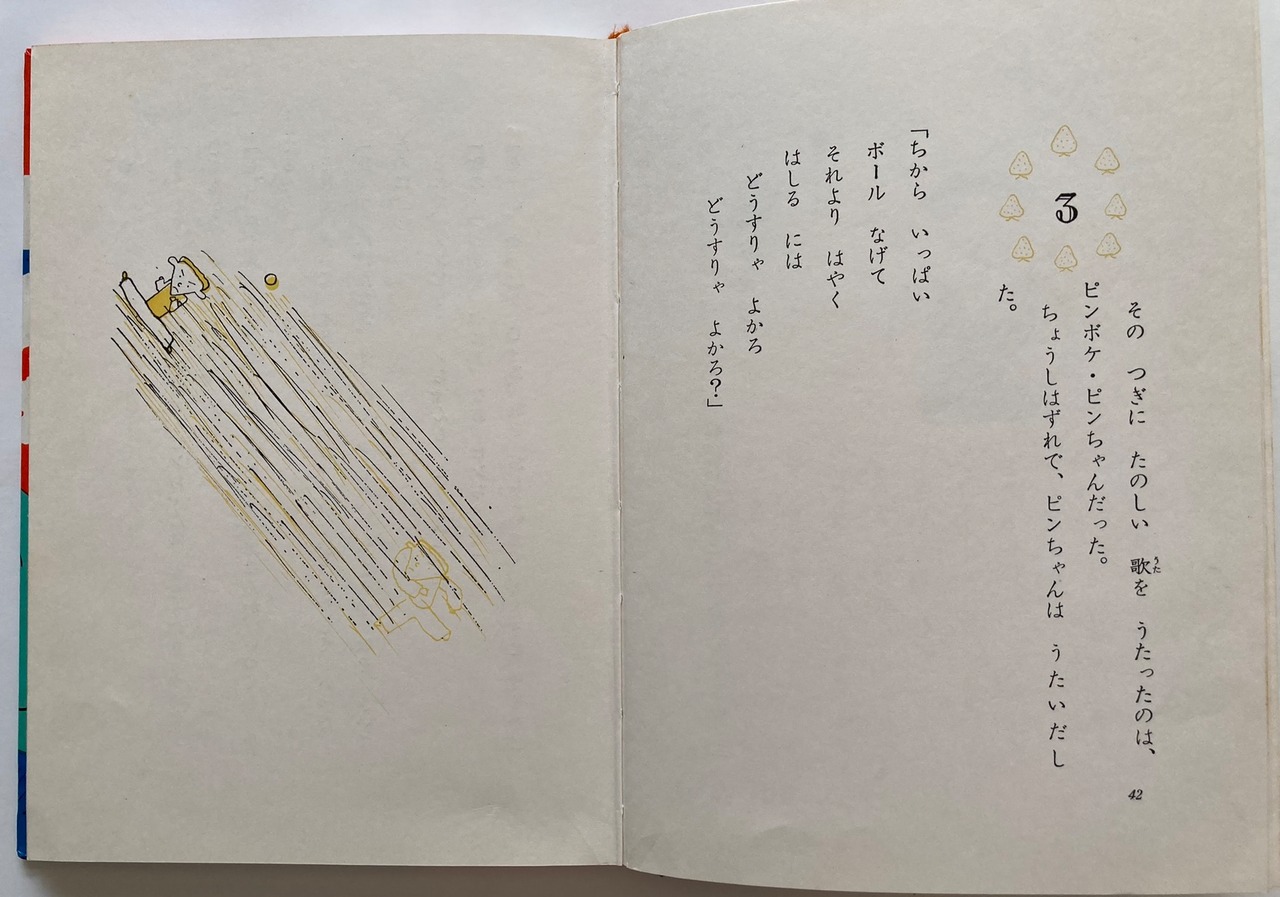 3
その　つぎに　たのしい　歌を　うたったのは、
ピンボケ・ピンちゃんだった。
ちょうしはずれで、ピンちゃんは　うたいだし
た。
「ちから　いっぱい
ボール　なげて
それより　はやく
はしる　には
どうすりゃ　よかろ
どうすりゃ　よかろ？」
42